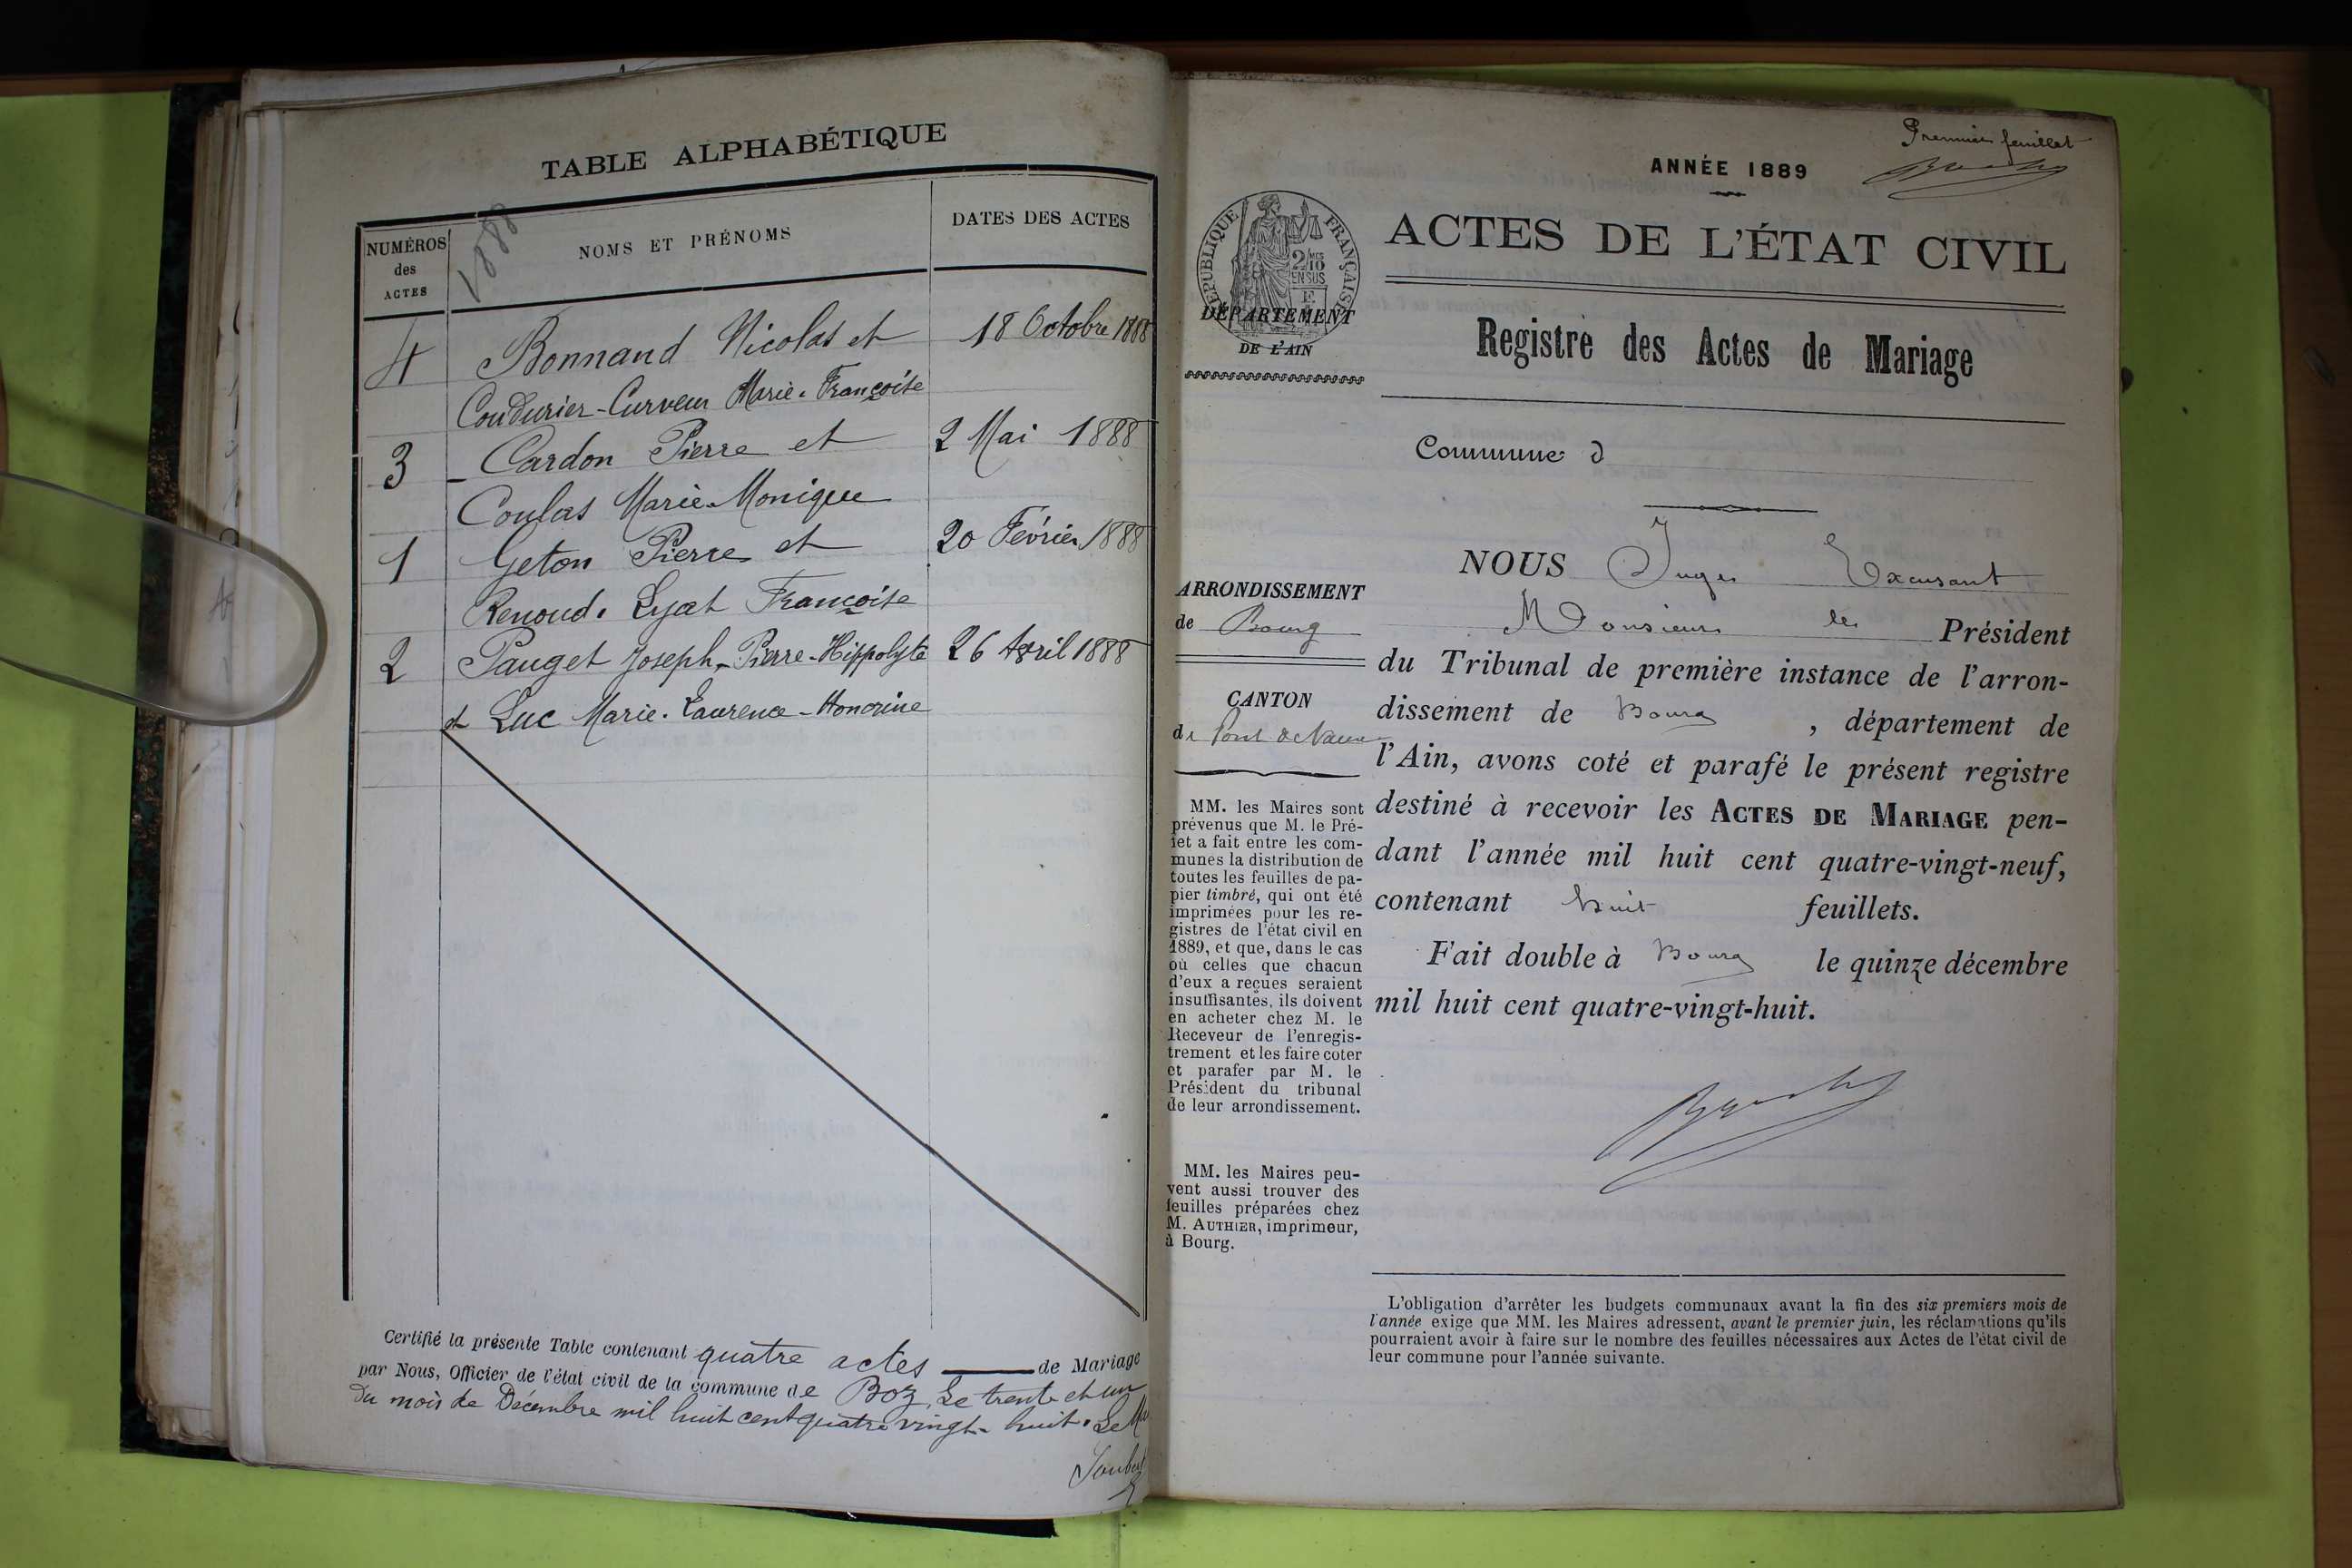 TABLE ALPHABÉTIQUE
NUMÉROS
des
ACTES
1888
NOMS ET PRÉNOMS
DATES DES ACTES
4 Bonnand Nicolas et 18 Octobre 1888
Coudurier-Curveur Marie-Françoise
3 - Cardon Pierre et 2 Mai 1888
Coulas Marie-Monique
1 Geton Pierre et 20 Février 1888
Renoud-Lyat Françoise
2 Pauget Joseph-Pierre-Hippolyte 26 Avril 1888
et Luc Marie-Laurence-Honorine
Certifié la présente Table contenant quatre actes de Mariage
par Nous, Officier de l'état civil de la commune de Boz, Le trente et un
du mois de Décembre mil huit cent quatre vingt-huit. Le
Premier feuillet
ANNÉE 1889
RÉPUBLIQUE FRANÇAISE
2/10
EN SUS
DÉPARTEMENT
DE L'AIN
ACTES DE L'ÉTAT CIVIL
Registre des Actes de Mariage
Commune d
ARRONDISSEMENT
de Bourg
CANTON
de Pont de Vaux
MM. les Maires sont
prévenus que M. le Pré-
fet a fait entre les com-
munes la distribution de
toutes les feuilles de pa-
pier timbré, qui ont été
imprimées pour les re-
gistres de l'état civil en
1889, et que, dans le cas
où celles que chacun
d'eux a reçues seraient
insuffisantes, ils doivent
en acheter chez M. le
Receveur de l'enregis-
trement et les faire coter
et parafer par M. le
Président du tribunal
de leur arrondissement.
MM. les Maires peu-
vent aussi trouver des
feuilles préparées chez
M. AUTHIER, imprimeur,
à Bourg.
NOUS Juge Excusant
Monsieur le Président
du Tribunal de première instance de l'arron-
dissement de Bourg, département de
l'Ain, avons coté et parafé le présent registre
destiné à recevoir les ACTES DE MARIAGE pen-
dant l'année mil huit cent quatre-vingt-neuf,
contenant huit feuillets.
Fait double à Bourg le quinze décembre
mil huit cent quatre-vingt-huit.
L'obligation d'arrêter les budgets communaux avant la fin des six premiers mois de
l'année exige que MM. les Maires adressent, avant le premier juin, les réclamations qu'ils
pourraient avoir à faire sur le nombre des feuilles nécessaires aux Actes de l'état civil de
leur commune pour l'année suivante.